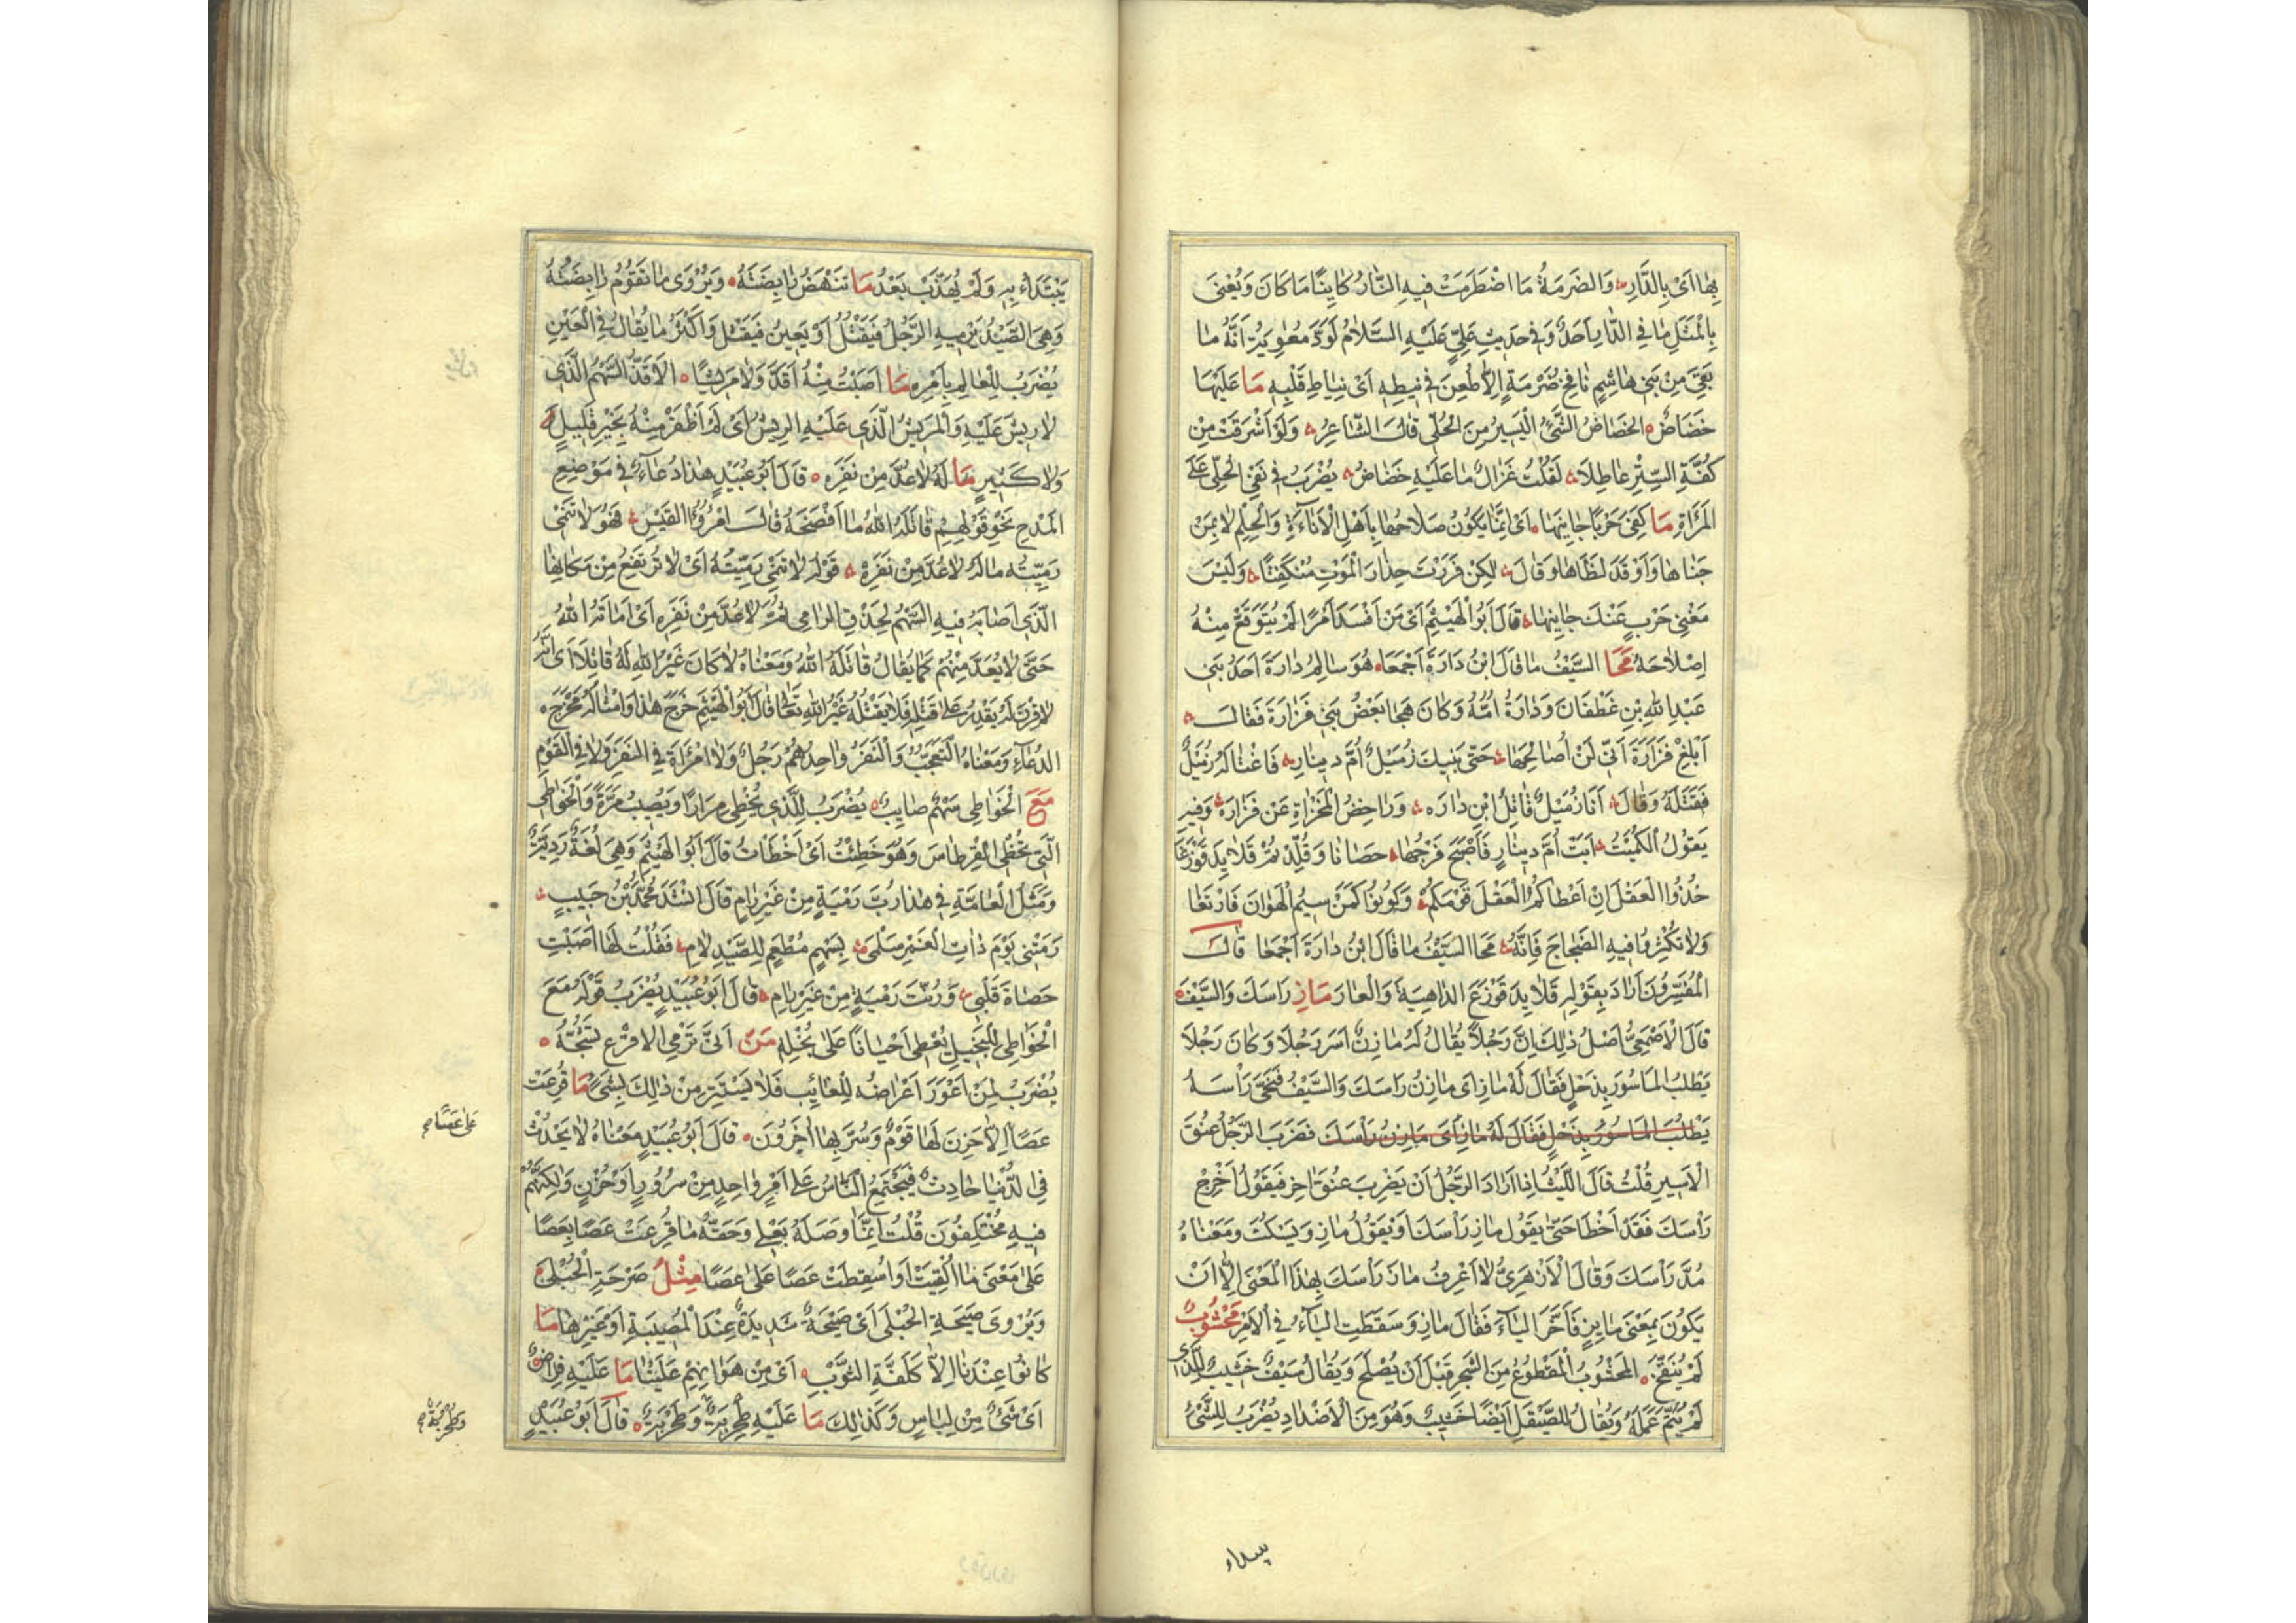 بِهَا اَىْ بِالدَّارِ وَالضَرَمَةُ مَا اضْطَرَمَتْ فِيهِ النَّارُ كَايِنًا مَا كَانَ وَيُعْنىَ
بِالْمَثَلِ مَا فِي الدَّارِ اَحَدٌ وَفي حَدِيثِ عَلِيٍّ عَلَيْهِ السَّلَامُ لَوَدَّ مُعٰوِيَةُ اَنَّهُ مَا
بَقِيَ مِنْ بَنِي هَاشِمٍ نَافِخُ ضَرْمَةٍ اِلَّا طُعِنَ فِي نِيطِهِ اَىْ نِيَاطِ قَلْبِهِ مَا عَلَيْهَا
خَضَاضٌ الخَضَاضُ الشَّئُ الْيَسِيرُ مِنَ الْحُلِّى قَالَ الشَّاعِرُ وَلَوْ اَشْرَقَتْ مِنْ
كُفَّةِ السِّتْرِ عَاطِلًا لَقُلْتَ غَزَالٌ مَا عَلَيْهِ خَضَاضُ يُضْرَبُ في نَفْيِ الْحِلّى عَلَى
المَرْاَةِ مَا كَفىَ حَرْبًا جَانِيهَا اَىْ اِنَّمَا يَكُونُ صَلَاحُهَا بِاَهْلِ الْاَنَاءَةِ وَالْحِلْمِ لَا بِمَنْ
جَنَاهَا وَاَوْقَدَ لَظَاهَا وَقَالَ لٰكِنْ فَرَرْتَ حِذَارَ الْمَوْتِ مُنْكَفِتًا وَلَيْسَ
مُغْنِىَ حَرْبٍ عَنْكَ جَانِيهَا قَالَ اَبُو الْهَيْثَمِ اَىْ مَنْ اَفْسَدَ اَمْرًا لَمْ يُتَوَقَّعْ مِنْهُ
اِصْلَاحَهُ مَحَا السَّيْفُ مَا قَالَ ابْنُ دَارَةَ اَجْمَعَا هُوَ سَالِمُ دَارَةَ اَحَدُ بَنِي
عَبْدِ اللهِ بْنِ غَطْفَانَ وَدَارَةُ اُمُّهُ وَكَانَ هَجَا بَعْضَ بَنِي فَزَارَةَ فَقَالَ
اَبْلِغْ فَزَارَةَ اَنِّي لَنْ اُصَالِحَهَا حَتّى يَنِيكَ زُمَيْلٌ اُمَّ دِينَارِ فَاغْتَالَهُ زُمَيْلٌ
فَقَتَلَهُ وَقَالَ اَنَا زُمَيْلٌ قَاتِلُ ابْنِ دَارَه وَرَاحِضُ الْمَخْزَاةِ عَنْ فَزَارَه وَفيهِ
يَقُولُ الْكُمَيْتُ اَبَتْ اُمُّ دِينَارٍ فَاَصْبَحَ فَرْجُهَا حِصَانًا وَقُلِّدْتُمْ قَلَايِدَ قَوْزَعَا
خُذُوا الْعَقْلَ اِنْ اَعْطَاكُمُ الْعَقْلَ قَوْمُكُمْ وَكُونُوا كَمَنْ سِيمَ الْهَوَانَ فَارْتَعَا
وَلَا تُكْثِرُوا فِيهِ الضَّجَاجَ فَاِنَّهُ مَحَا السَّيْفُ مَا قَالَ ابْنُ دَارَةَ اَجْمَعَا قَالَ
الْمُفَسِّرُونَ اَرَادَ بِقَوْلِهِ قَلَايِدَ قَوْزَعَ الدَاهِيَةَ وَالْعَارَ مَازِ رَاسَكَ وَالسَّيْفَ
قَالَ الْاَصْمَعِيُّ اَصْلُ ذٰلِكَ اِنَّ رَجُلًا يُقَالُ لَهُ مَازِنٌ اَسَرَ رَجُلًا وَكَانَ رَجُلًا
يَطْلُبُ الْمَاسُورَ بِذَحْلٍ فَقَالَ لَهُ مَازِ اَى مَازِنُ رَاْسَكَ وَالسَّيْفُ فَنَحَّى رَاْسَهُ
يَطْلُبُ الْمَاسُورَ بِذَحْلٍ فَقَالَ لَهُ مَازِ اَى مَازِنُ رَاْسَكَ فَضَرَبَ الرَّجُلُ عُنُقَ
الْاَسِيرِ قُلْتُ قَالَ اللَّيْثُ اِذَا اَرَادَ الرَّجُلُ اَنْ يَضْرِبَ عُنُقَ اٰخَرَ فَيَقُولُ اَخْرِجْ
رَاْسَكَ فَقَدْ اَخْطَا حَتّى يَقُولَ مَازِ رَاْسَكَ اَوْ يَقُولُ مَازِ وَيَسْكُتُ وَمَعْنَاهُ
مُدَّ رَاْسَكَ وَقَالَ الْاَزْهَرِيُّ لَا اَعْرِفُ مَازِ رَاْسَكَ بِهٰذَا الْمَعْنَى اِلَّا اَنْ
يَكُونَ بِمَعْنىَ مَايِزٍ فَاَخَّرَ اليَاءَ فَقَالَ مَازِ وَسَقَطَتِ اليَاءُ فِي الْاَمْرِ مَخْشُوبٌ
لَمْ يُنَقَّحْ المَخْشُوبُ الْمَقْطُوعُ مِنَ الشَّجَرِ قَبْلَ اَنْ يُصْلَحَ وَيُقَالُ سَيْفٌ خَشِيبٌ لِلَّذِى
لَمْ يُتَمَّ عَمَلُهُ وَيُقَالُ لِلصَّيْقَلِ اَيْضًا خَشِيبٌ وَهُوَ مِنَ الْاَضْدَادِ يُضْرَبُ لِلشَّئِ
يبتداء
يُبْتَدَاءُ بِهِ وَلَمْ يُهَذَّبْ بَعْدُ مَا تَنْهَضُ رَابِضَتُهُ وَيُرْوَى مَا تَقُومُ رَابِضَتُهُ
وَهِيَ الصَّيْدُ يَرْمِيهِ الرَّجُلُ فَيَقْتُلُ اَوْ يَعِينُ فَيَقْتُلُ وَاَكْثَرُ مَا يُقَالُ فِي الْعَيْنِ
يُضْرَبُ لِلْعَالِمِ بِاَمْرِهِ مَا اَصَبْتُ مِنْهُ اَقَذَّ وَلَا مَرِيشًا الْاَقَذُّ السَّهْمُ الَّذِى
لَا رِيشَ عَلَيْهِ وَالْمَرِيشُ الَّذِى عَلَيْهِ الرِيشُ اَىْ لَمْ اَظْفَرْ مِنْهُ بِخَيْرٍ قَلِيلٍ
وَلَا كَثِيرٍ مَا لَهُ لَا عُدَّ مِنْ نَفَرِهِ قَالَ اَبُو عُبَيْدٍ هٰذَا دُعَاءٌ فِي مَوْضِعِ
الْمَدْحِ نَحْوُ قَوْلِهِمْ قَاتَلَهُ اللهُ مَا اَفْصَحَهُ قَالَ امْرُؤُ الْقَيْسِ فَهُوَ لَا تَنْمِى
رَمِيَّتُهُ مَا لَهُ لَا عُدَّ مِنْ نَفَرِهْ قَوْلُهُ لَا تَنْمِى رَمِيَّتُهُ اَىْ لَا تَرْتَفِعُ مِنْ مَكَانِهَا
الَّذِى اَصَابَهُ فِيهِ السَّهْمُ لِحِذْقِ الرَامِى ثُمَّ لَا عُدَّ مِنْ نَفَرِهِ اَىْ اَمَاتَهُ اللهُ
حَتَّى لَا يُعَدَّ مِنْهُمْ كَمَا يُقَالُ قَاتَلَهُ اللهُ وَمَعْنَاهُ لَا كَانَ غَيْرُ اللهِ لَهُ قَاتِلًا اَى اَنَّهُ
لَا قِرْنَ لَهُ يَقْدِرُ عَلَى قَتْلِهِ فَلَا يَقْتُلُهُ غَيْرُ اللهِ تَعَالَى قَالَ اَبُو الْهَيْثَمِ خَرَجَ هٰذَا وَاَمْثَالُهُ مَخْرَجَ
الدُعَاءِ وَمَعْنَاهُ التَّعَجُّبُ وَالنَّفَرُ وَاحِدُهُمْ رَجُلٌ وَلَا امْرَاَةَ فِي النَفَرِ وَلَا فِي الْقَوْمِ
مَعَ الْخَوَاطِى سَهْمٌ صَايِبٌ يُضْرَبُ لِلَّذِى يُخْطِى مِرَارًا وَيُصِيبُ مَرَّةً وَالْخَوَاطِى
الَّتِي تُخْطِى الْقِرْطَاسَ وَهُوَ خَطِئْتُ اَىْ اَخْطَاتُ قَالَ اَبُو الْهَيْثَمِ وَهِيَ لُغَةٌ رَدِيَّةٌ
وَمَثَلُ الْعَامَّةِ فِي هٰذَا رُبَّ رَمْيَةٍ مِنْ غَيْرِ رَامٍ قَالَ انْشَدَ مُحَمَّدُ بْنُ حَبِيبٍ
رَمَتْنِى يَوْمَ ذَاتِ الْغَمْرِ سَلْمَى بِسَهْمٍ مُطْعَمٍ لِلصَّيْدِ لَامِ فَقُلْتُ لَهَا اَصَبْتِ
حَصَاةَ قَلْبِى وَرُبَّتَ رَمْيَةٍ مِنْ غَيْرِ رَامِ قَالَ اَبُو عُبَيْدٍ يُضْرَبُ قَوْلُهُ مَعَ
الْخَوَاطِى لِلْبَخِيلِ يُعْطِى اَحْيَانًا عَلَى بُخْلِهِ مَنْ اَنَّى تَرْمِى الاقْرَعَ تَشُجُّهُ
يُضْرَبُ لِمَنْ اَعْوَرَ اَعْرَاضَهُ لِلْعَائِبِ فَلَا يَسْتَتِرُ مِنْ ذَالِكَ بِشَىْءٍ مَا قُرِعَتْ
عَصًا اِلَّا حَزِنَ لَهَا قَوْمٌ وَسُرَّ بِهَا اٰخَرُونَ قَالَ اَبُو عُبَيْدٍ مَعْنَاهُ لَا يَحْدُثُ
عَلَى عَصًا صح
فِي الدُّنْيَا حَادِثٌ فَيَجْتَمِعُ النَّاسُ عَلَى اَمْرٍ وَاحِدٍ مِنْ سُرُورٍ اَوْ حُزْنٍ وَلٰكِنَّهُمْ
فِيهِ مُخْتَلِفُونَ قُلْتُ اِنَّمَا وَصَلَهُ بِعَلَى وَحَقُّهُ مَا قُرِعَتْ عَصًا بِعَصًا
عَلَى مَعْنىَ مَا اُلْقِيَتْ اَوْ اُسْقِطَتْ عَصًا عَلَى عَصًا مِثْلُ صَرْخَةِ الْحُبْلَى
وَيُرْوَى صَيْحَةِ الحُبْلَى اَىْ صَيْحَةٌ شَدِيدَةٌ عِنْدَ الْمُصِيبَةِ اَوْ غَيْرِهَا مَا
كَانُوا عِنْدَنَا اِلَّا كَلَفَّةِ الثَّوْبِ اَىْ مِنْ هَوَانِهِمْ عَلَيْنَا مَا عَلَيْهِ فِرَاضٌ
اَىْ شَئٌ مِنْ لِبَاسٍ وَكَذٰلِكَ مَا عَلَيْهِ طِحْرِبَةٌ وَطَحْرَبَةٌ قَالَ اَبُو عُبَيْدٍ
وَطُحْرُبَةٌ صح